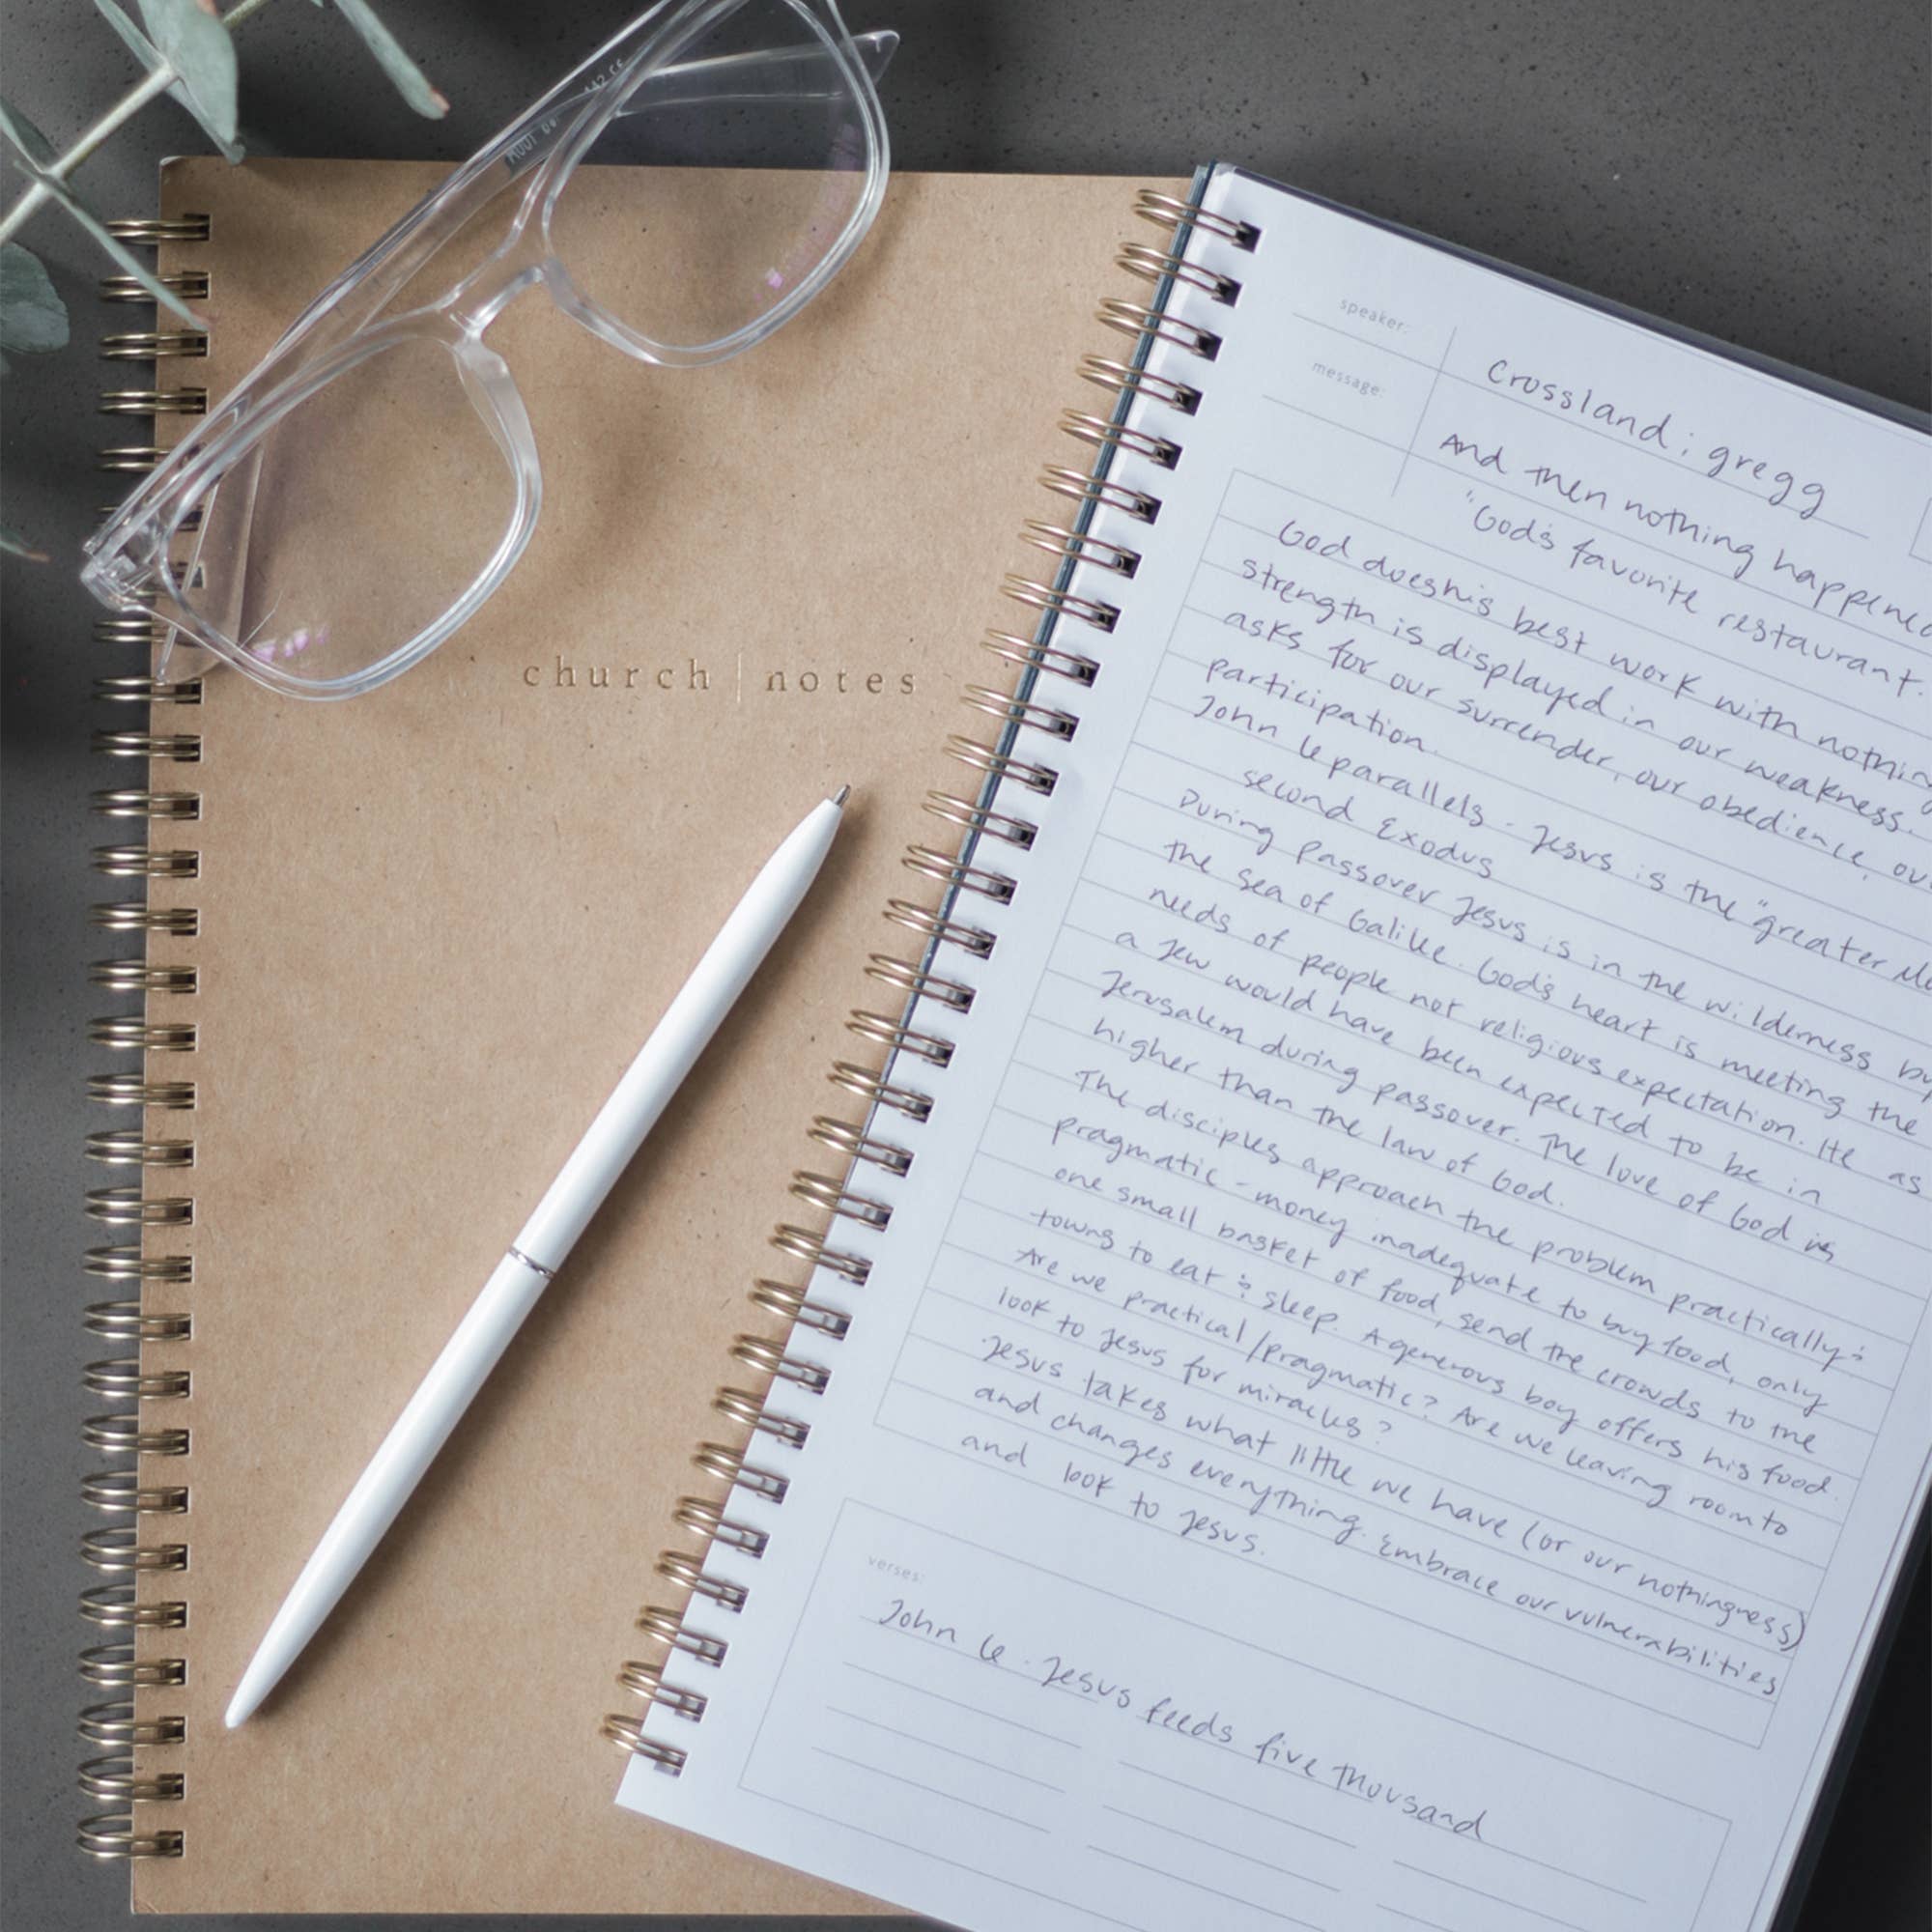 church | notes
speaker:
Crossland ; gregg
message:
And then nothing happened
"God's favorite restaurant.
God does his best work with
strength is displayed in our weakness.
asks for our surrender, our obedience,
participation.
John 6 parallels - Jesus is the "greater
second Exodus
During Passover Jesus is in the wilderness by
the Sea of Galilee. God's heart is meeting the
needs of people not religious expectation. He as
a Jew would have been expected to be in
Jerusalem during passover. The love of God is
higher than the law of God.
The disciples approach the problem practically ;
pragmatic - money inadequate to buy food, only
one small basket of food, send the crowds to the
towns to eat ; sleep. A generous boy offers his food.
Are we practical/pragmatic? Are we leaving room to
look to Jesus for miracles?
Jesus takes what little we have (or our nothingness)
and changes everything. Embrace our vulnerabilities
and look to Jesus.
verses:
John 6 - Jesus feeds five thousand